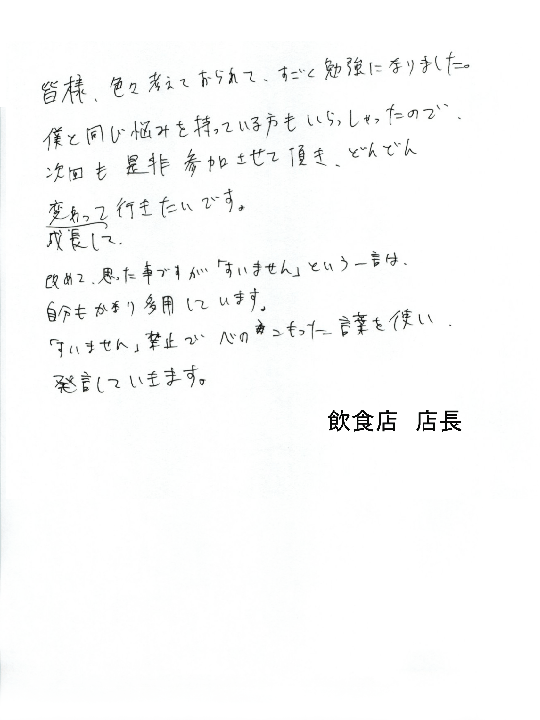 皆様、色々考えておられて、すごく勉強になりました。
僕と同じ悩みを持っている方もいらっしゃったので、
次回も是非参加させて頂き、どんどん
変わって行きたいです。
成長して、
改めて、思った事ですが「すいません」という一言は、
自分もかなり多用しています。
「すいません」禁止で心のこもった言葉を使い、
発言していきます。
飲食店 店長